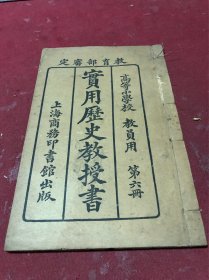 教育部審定
高等小學校 教員用 第六冊
實用歷史教授書
上海商務印書館出版